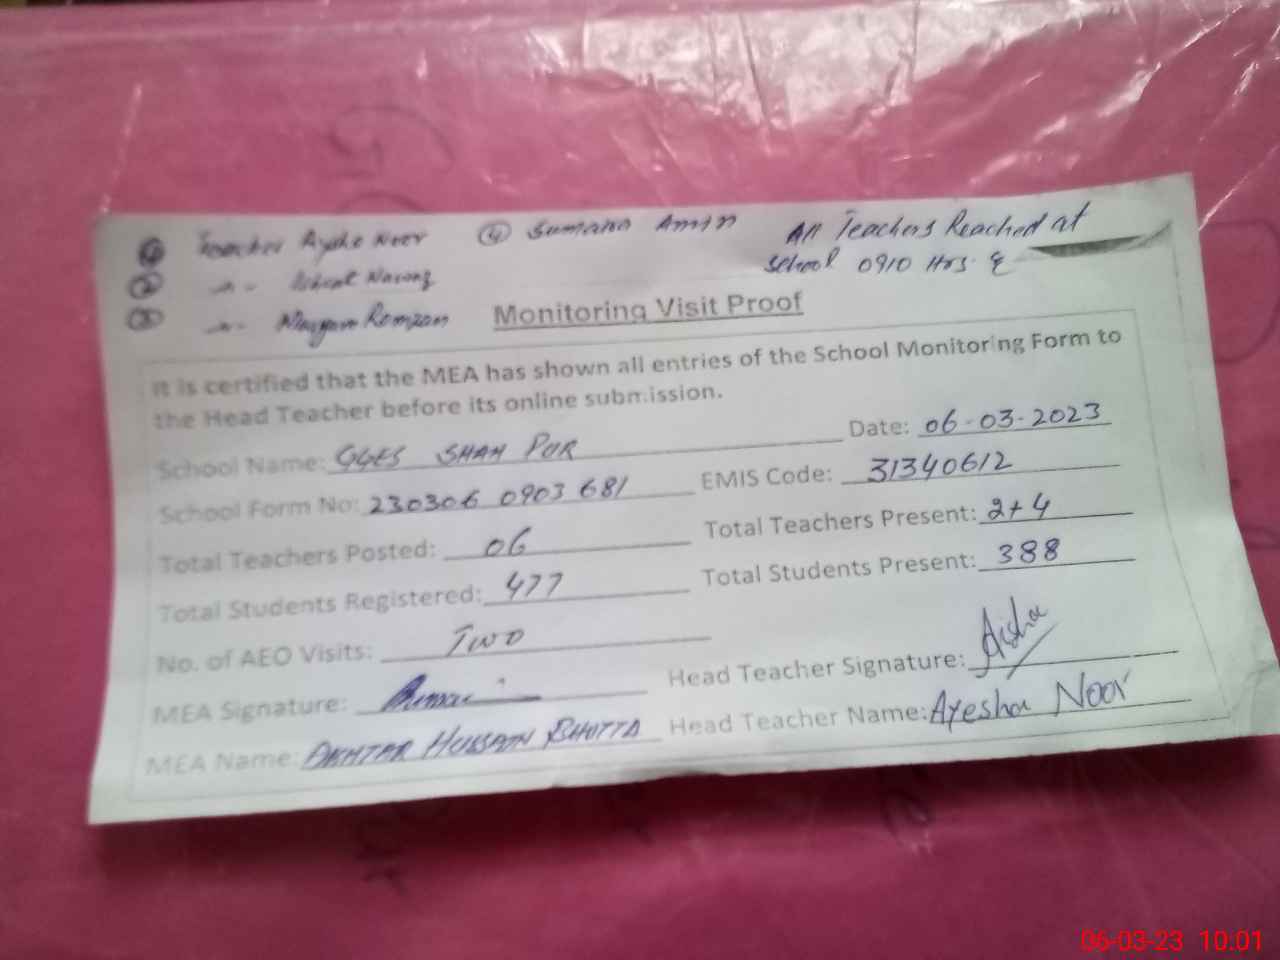 ① Teacher Aysha Noor ④ Sumana Amin All Teachers Reached at
② -~- school 0910 Hrs. &
③ -~- Maryam Ramzan
Monitoring Visit Proof
It is certified that the MEA has shown all entries of the School Monitoring Form to
the Head Teacher before its online submission.
School Name: GGES SHAH PUR Date: 06-03-2023
School Form No: 230306 0903 681 EMIS Code: 31340612
Total Teachers Posted: 06 Total Teachers Present: 2+4
Total Students Registered: 477 Total Students Present: 388
No. of AEO Visits: Two
MEA Signature: Head Teacher Signature: Aisha
MEA Name: AKHTAR HUSSAIN BHUTTA Head Teacher Name: Ayesha Noor
06-03-23 10.01